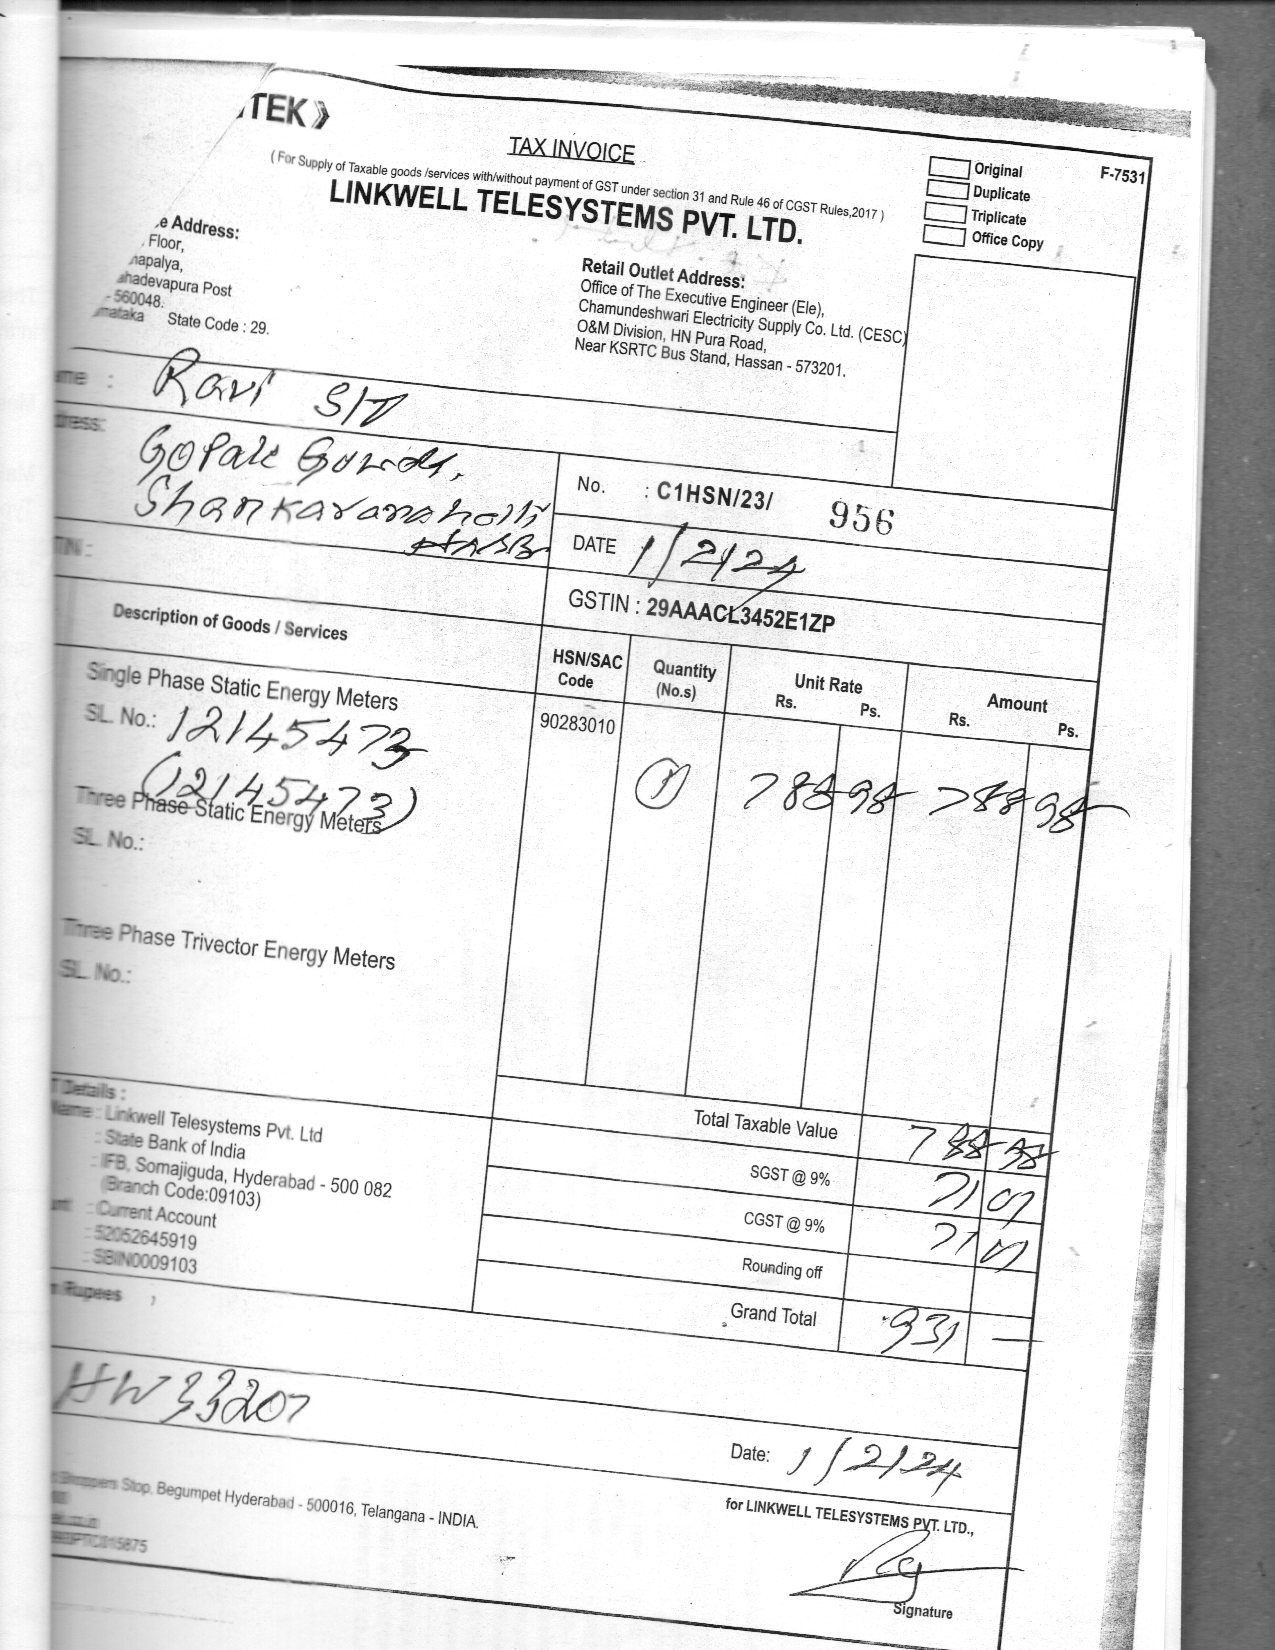 TEK
TAX INVOICE
( For Supply of Taxable goods /services with/without payment of GST under section 31 and Rule 46 of CGST Rules,2017 )
LINKWELL TELESYSTEMS PVT. LTD.
Original
Duplicate
Triplicate
Office Copy
F-7531
e Address:
Floor,
apalya,
hadevapura Post
- 560048.
nataka State Code : 29.
Retail Outlet Address:
Office of The Executive Engineer (Ele),
Chamundeshwari Electricity Supply Co. Ltd. (CESC)
O&M Division, HN Pura Road,
Near KSRTC Bus Stand, Hassan - 573201.
me : Ravi S/O
dress:
Gopal Gowda,
Shankaranahalli
No. : C1HSN/23/ 956
DATE 1/2/24
TIN :
GSTIN : 29AAACL3452E1ZP
Description of Goods / Services
HSN/SAC Code
Quantity (No.s)
Unit Rate
Rs. Ps.
Amount
Rs. Ps.
Single Phase Static Energy Meters
SL. No.: 12145473
(12145473)
90283010
1
788 98
788 98
Three Phase Static Energy Meters
SL. No.:
Three Phase Trivector Energy Meters
SL. No.:
T Details :
Name : Linkwell Telesystems Pvt. Ltd
: State Bank of India
: IFB, Somajiguda, Hyderabad - 500 082
(Branch Code:09103)
unt : Current Account
: 52052645919
: SBIN0009103
Total Taxable Value 788 98
SGST @ 9% 71 01
CGST @ 9% 71 01
Rounding off
Grand Total 931 —
n Rupees
HW 33207
Date: 1/2/24
Shoppers Stop, Begumpet Hyderabad - 500016, Telangana - INDIA.
PTC015875
for LINKWELL TELESYSTEMS PVT. LTD.,
Signature